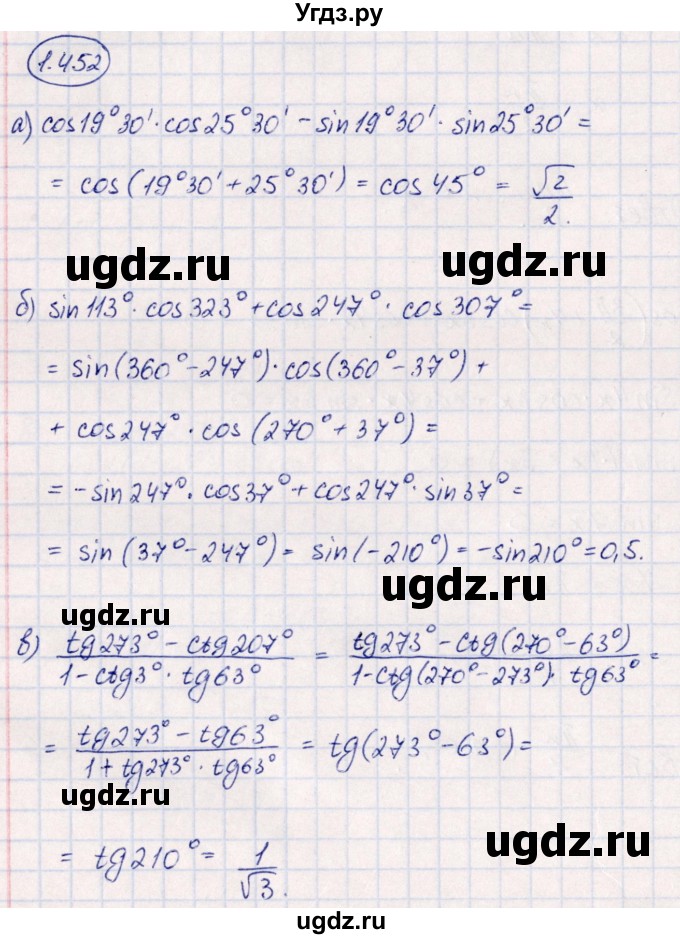 Угдз.ру
1.452
а) cos19°30'·cos25°30' – sin19°30'·sin25°30' =
= cos(19°30'+25°30') = cos45° = √2/2.
ugdz.ru ugdz.ru
б) sin113°·cos323°+cos247°·cos307°=
= sin(360°–247°)·cos(360°–37°) +
+ cos247°·cos(270°+37°) =
= –sin247°·cos37°+cos247°·sin37°=
= sin(37°–247°) = sin(–210°) = –sin210°=0,5.
ugdz.ru
ugdz.ru
в) (tg273° – ctg207°)/(1 – ctg3°·tg63°) = (tg273° – ctg(270°–63°))/(1–ctg(270°–273°)·tg63°) =
= (tg273° – tg63°)/(1 + tg273°·tg63°) = tg(273°–63°) =
ugdz.ru
ugdz.ru
= tg210° = 1/√3.
ugdz.ru